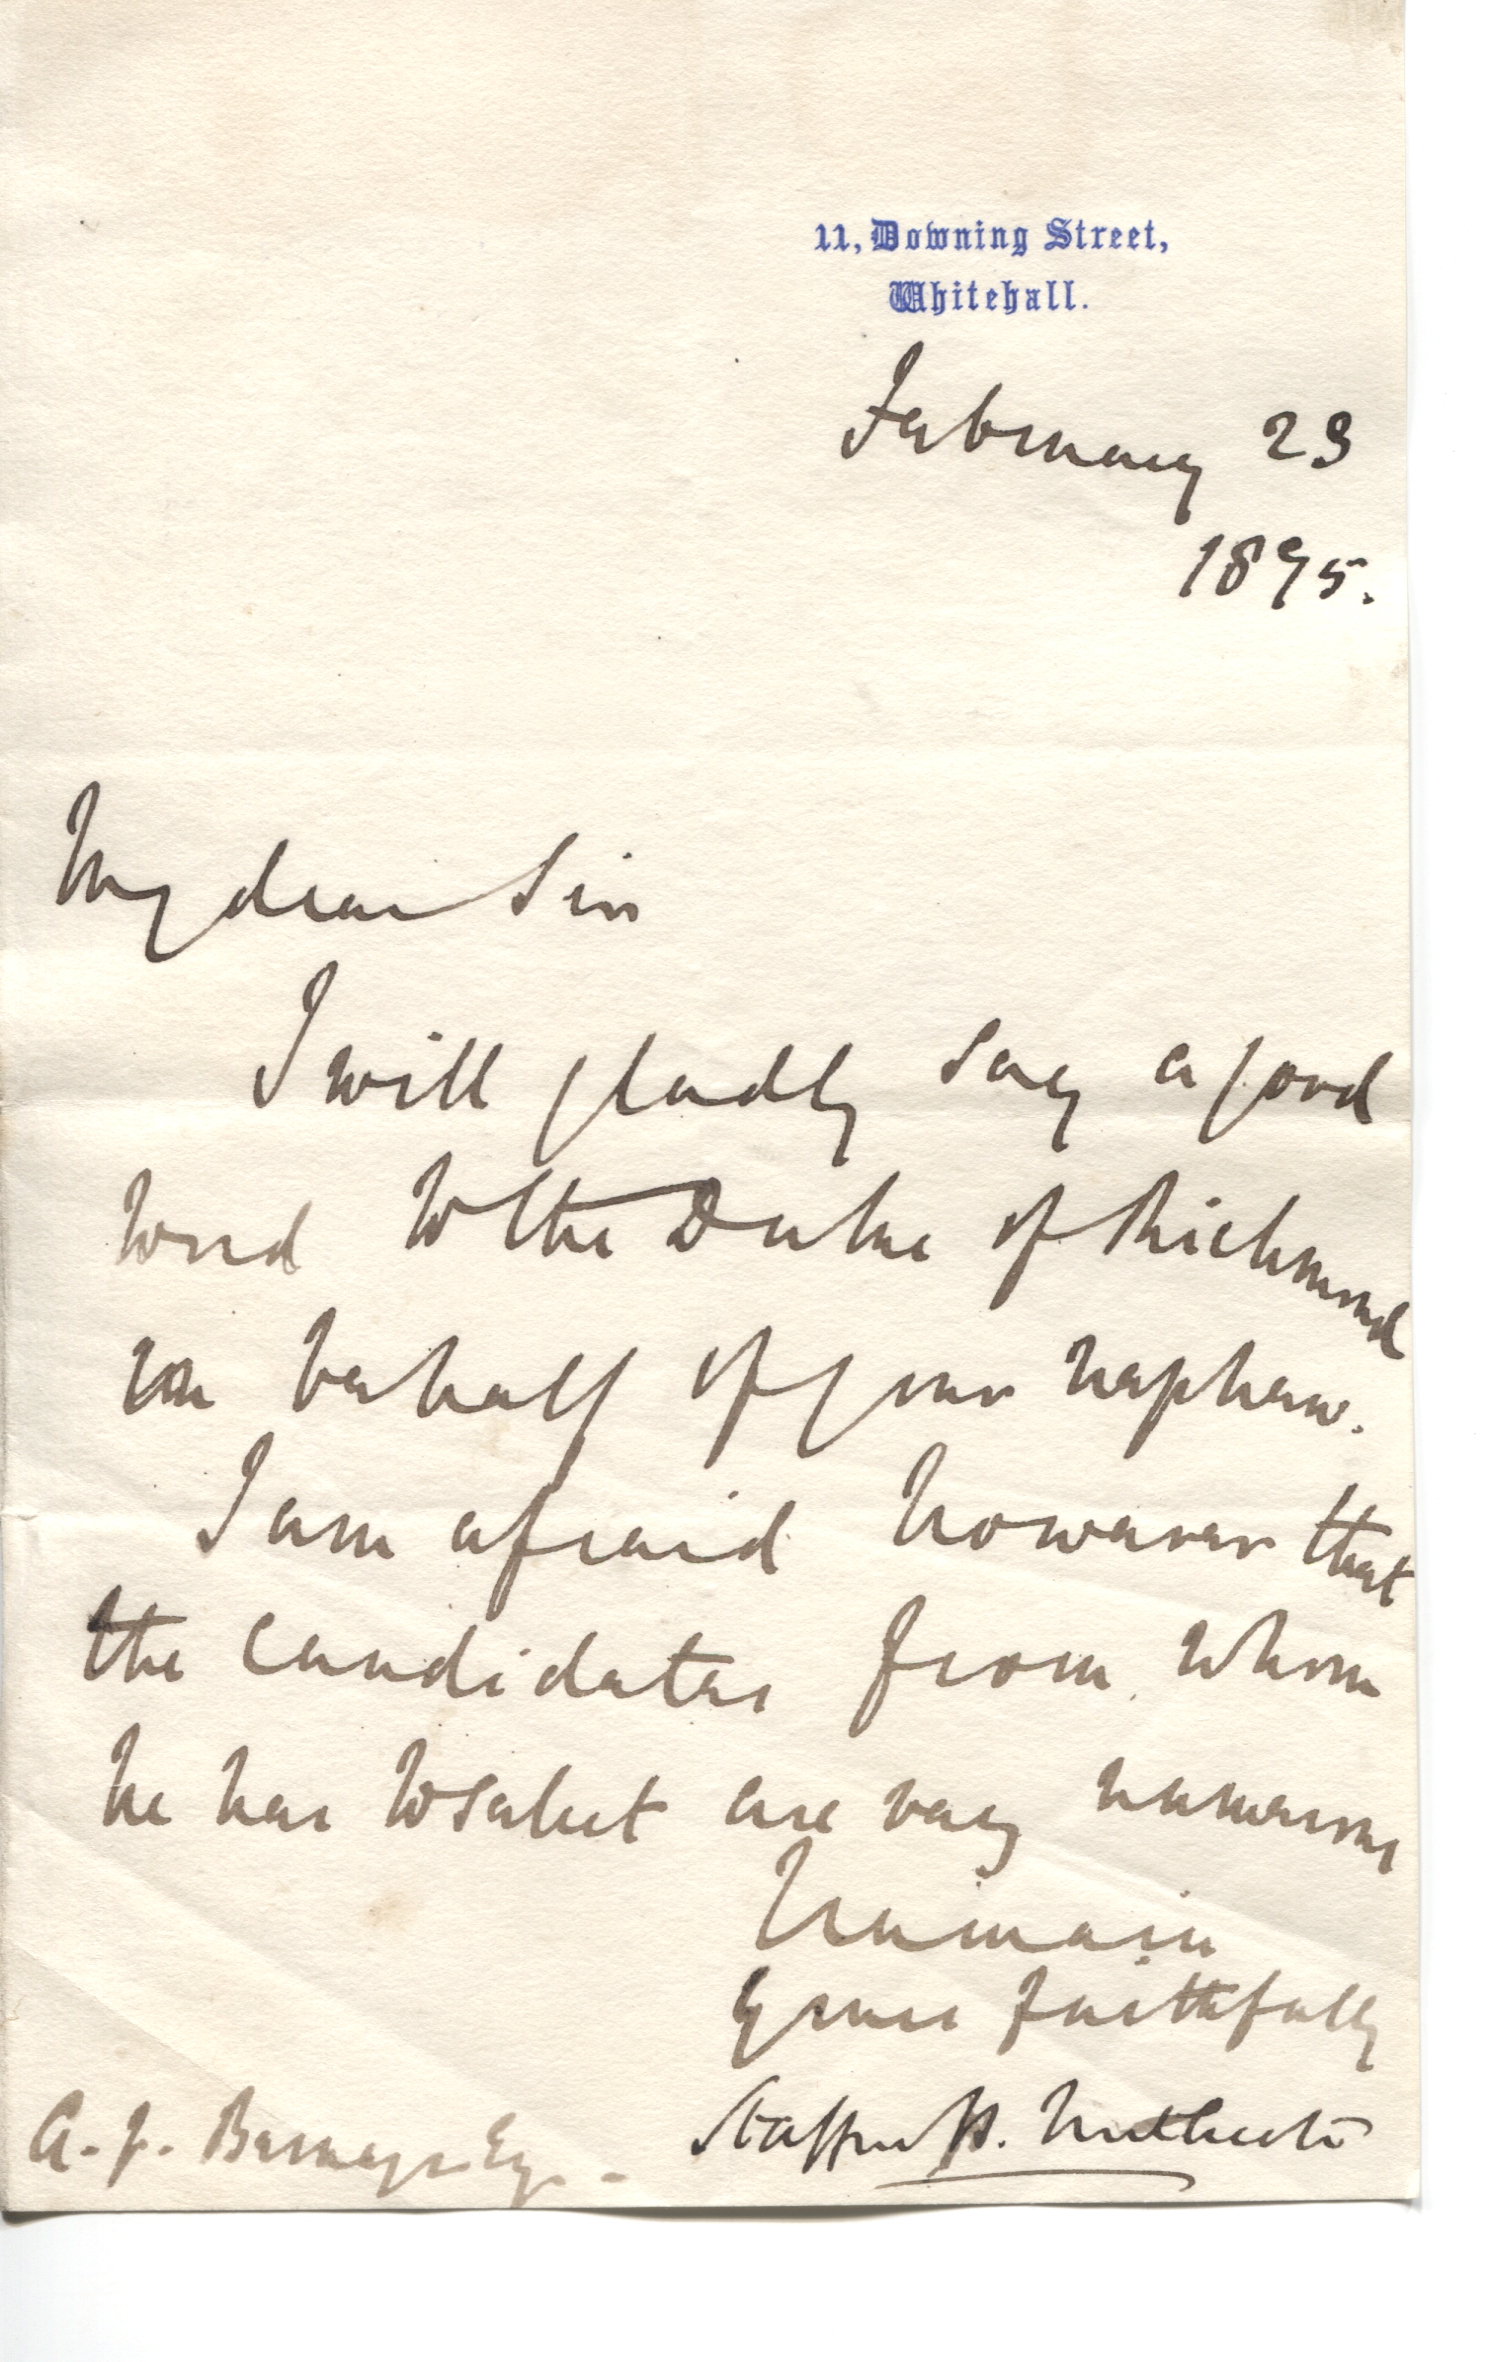 11, Downing Street,
Whitehall.
February 23
1875.
My dear Sir
I will gladly say a good
word to the Duke of Richmond
on behalf of your nephew.
I am afraid however that
the candidates from whom
he has to select are very numerous
I remain
Yours faithfully
Stafford H. Northcote
A. J. Barnays Esq.